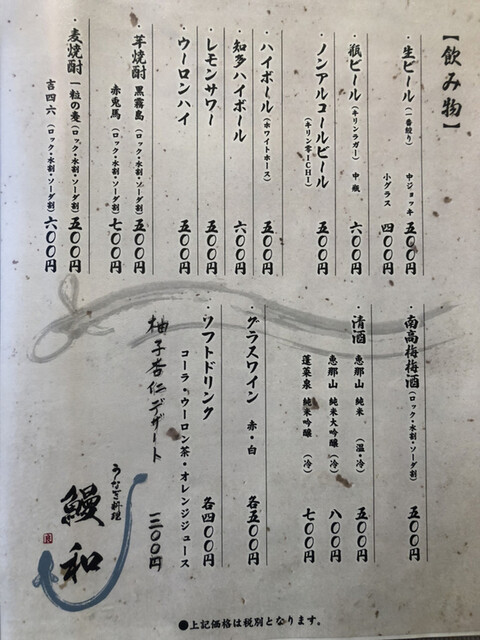 【飲み物】
・生ビール（一番搾り） 中ジョッキ 五〇〇円
小グラス 四〇〇円
・瓶ビール（キリンラガー） 中瓶 六〇〇円
・ノンアルコールビール（キリン零ICHI） 五〇〇円
・ハイボール（ホワイトホース） 五〇〇円
・知多ハイボール 六〇〇円
・レモンサワー 五〇〇円
・ウーロンハイ 五〇〇円
・芋焼酎 黒霧島（ロック・水割・ソーダ割） 五〇〇円
赤兎馬（ロック・水割・ソーダ割） 七〇〇円
・麦焼酎 一粒の麦（ロック・水割・ソーダ割） 五〇〇円
吉四六（ロック・水割・ソーダ割） 六〇〇円
・南高梅梅酒（ロック・水割・ソーダ割） 五〇〇円
・清酒 恵那山 純米（温・冷） 五〇〇円
恵那山 純米大吟醸（冷） 八〇〇円
蓬莱泉 純米吟醸（冷） 七〇〇円
・グラスワイン 赤・白 各五〇〇円
・ソフトドリンク 各四〇〇円
コーラ・ウーロン茶・オレンジジュース
柚子杏仁デザート 三〇〇円
うなぎ料理
鰻和
●上記価格は税別となります。